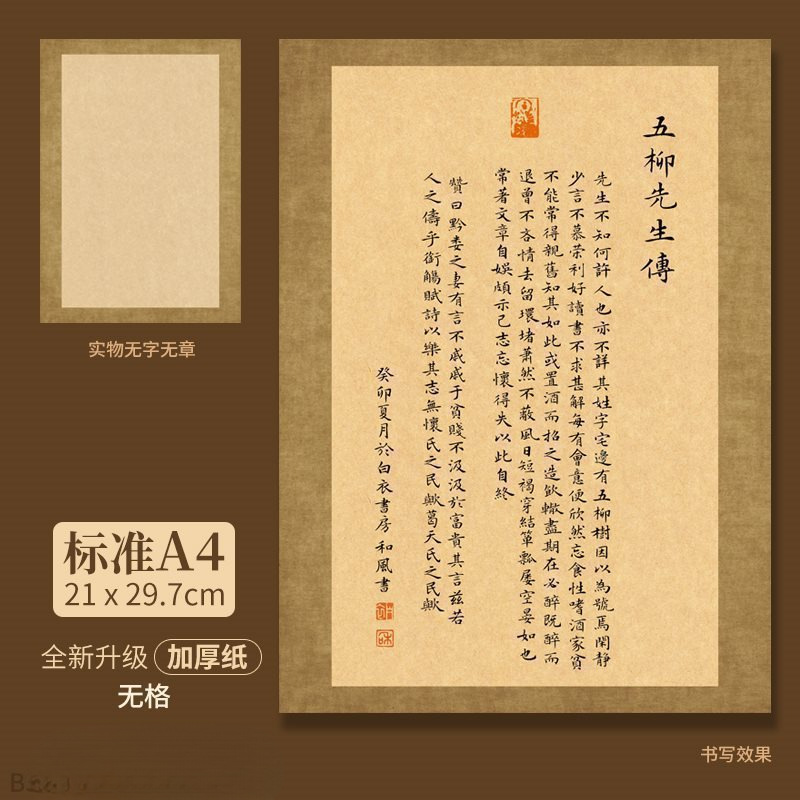 五柳先生傳
先生不知何許人也亦不詳其姓字宅邊有五柳樹因以為號焉閑静
少言不慕荣利好讀書不求甚解每有會意便欣然忘食性嗜酒家貧
不能常得親舊知其如此或置酒而招之造飲輒盡期在必醉既醉而
退曾不吝情去留環堵蕭然不蔽風日短褐穿結簞瓢屢空晏如也
常著文章自娛頗示己志忘懷得失以此自終
贊曰黔娄之妻有言不戚戚于貧賤不汲汲於富貴其言茲若
人之儔乎銜觴賦詩以樂其志無懷氏之民歟葛天氏之民歟
癸卯夏月於白衣書房和風書
实物无字无章
标准A4
21 x 29.7cm
全新升级 加厚纸
无格
书写效果